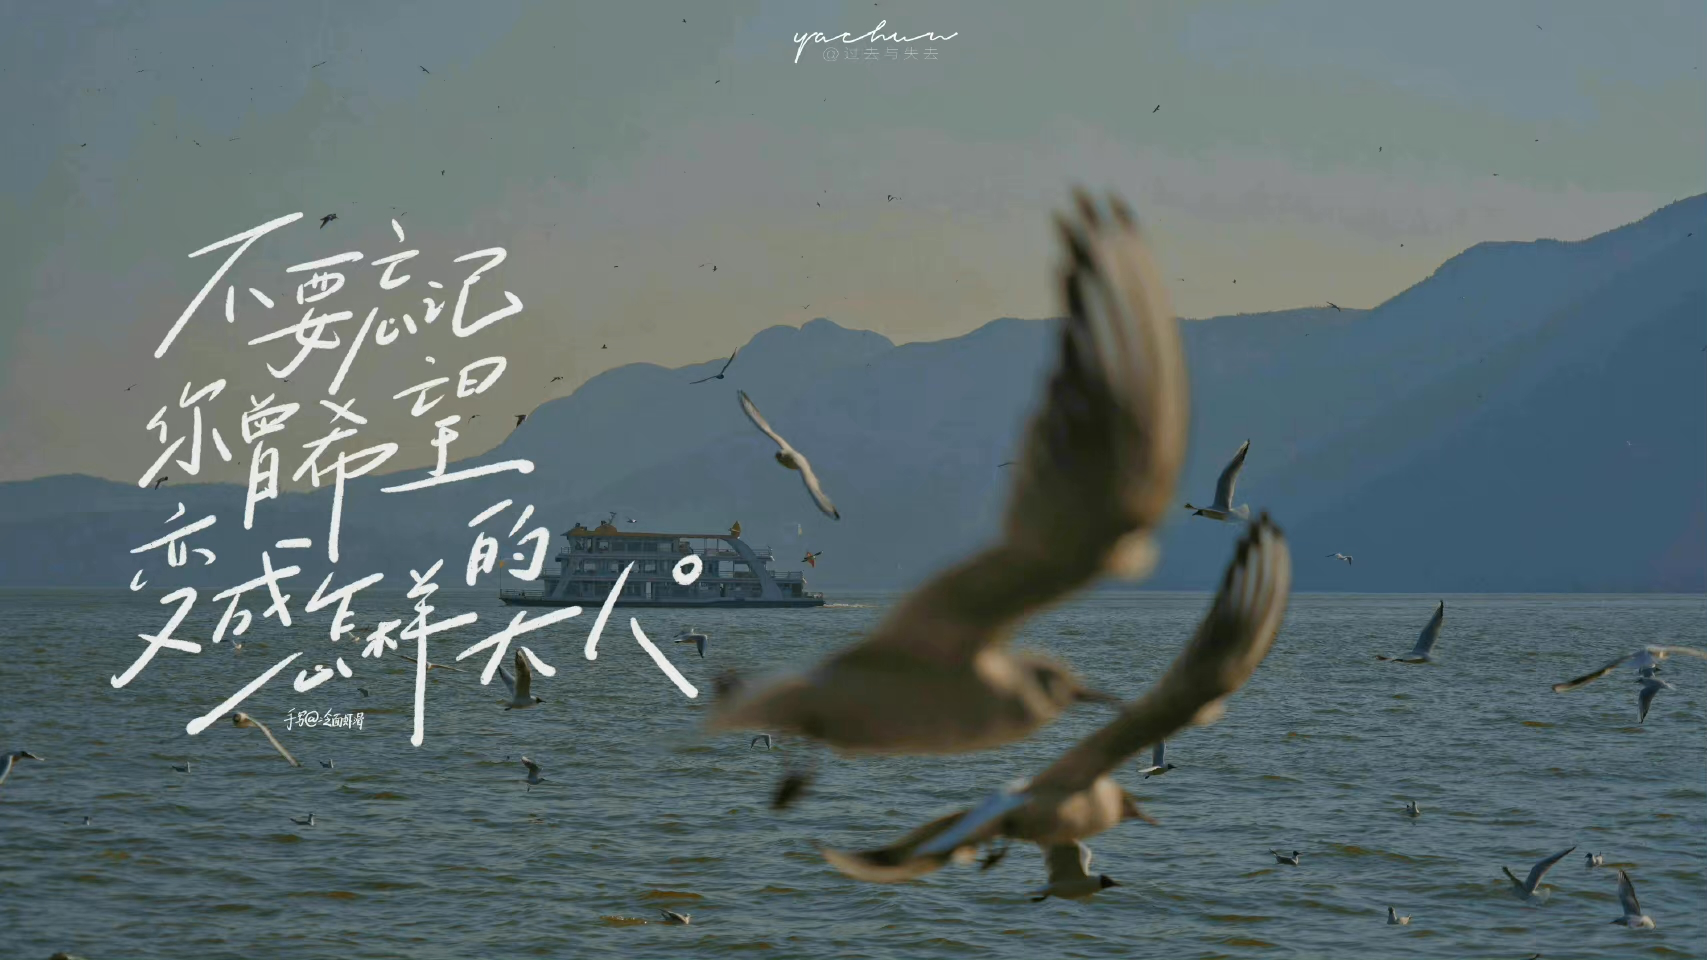 yachun
@过去与失去
不要忘记
你曾希望
变成怎样的大人。
手写@冷面虾滑